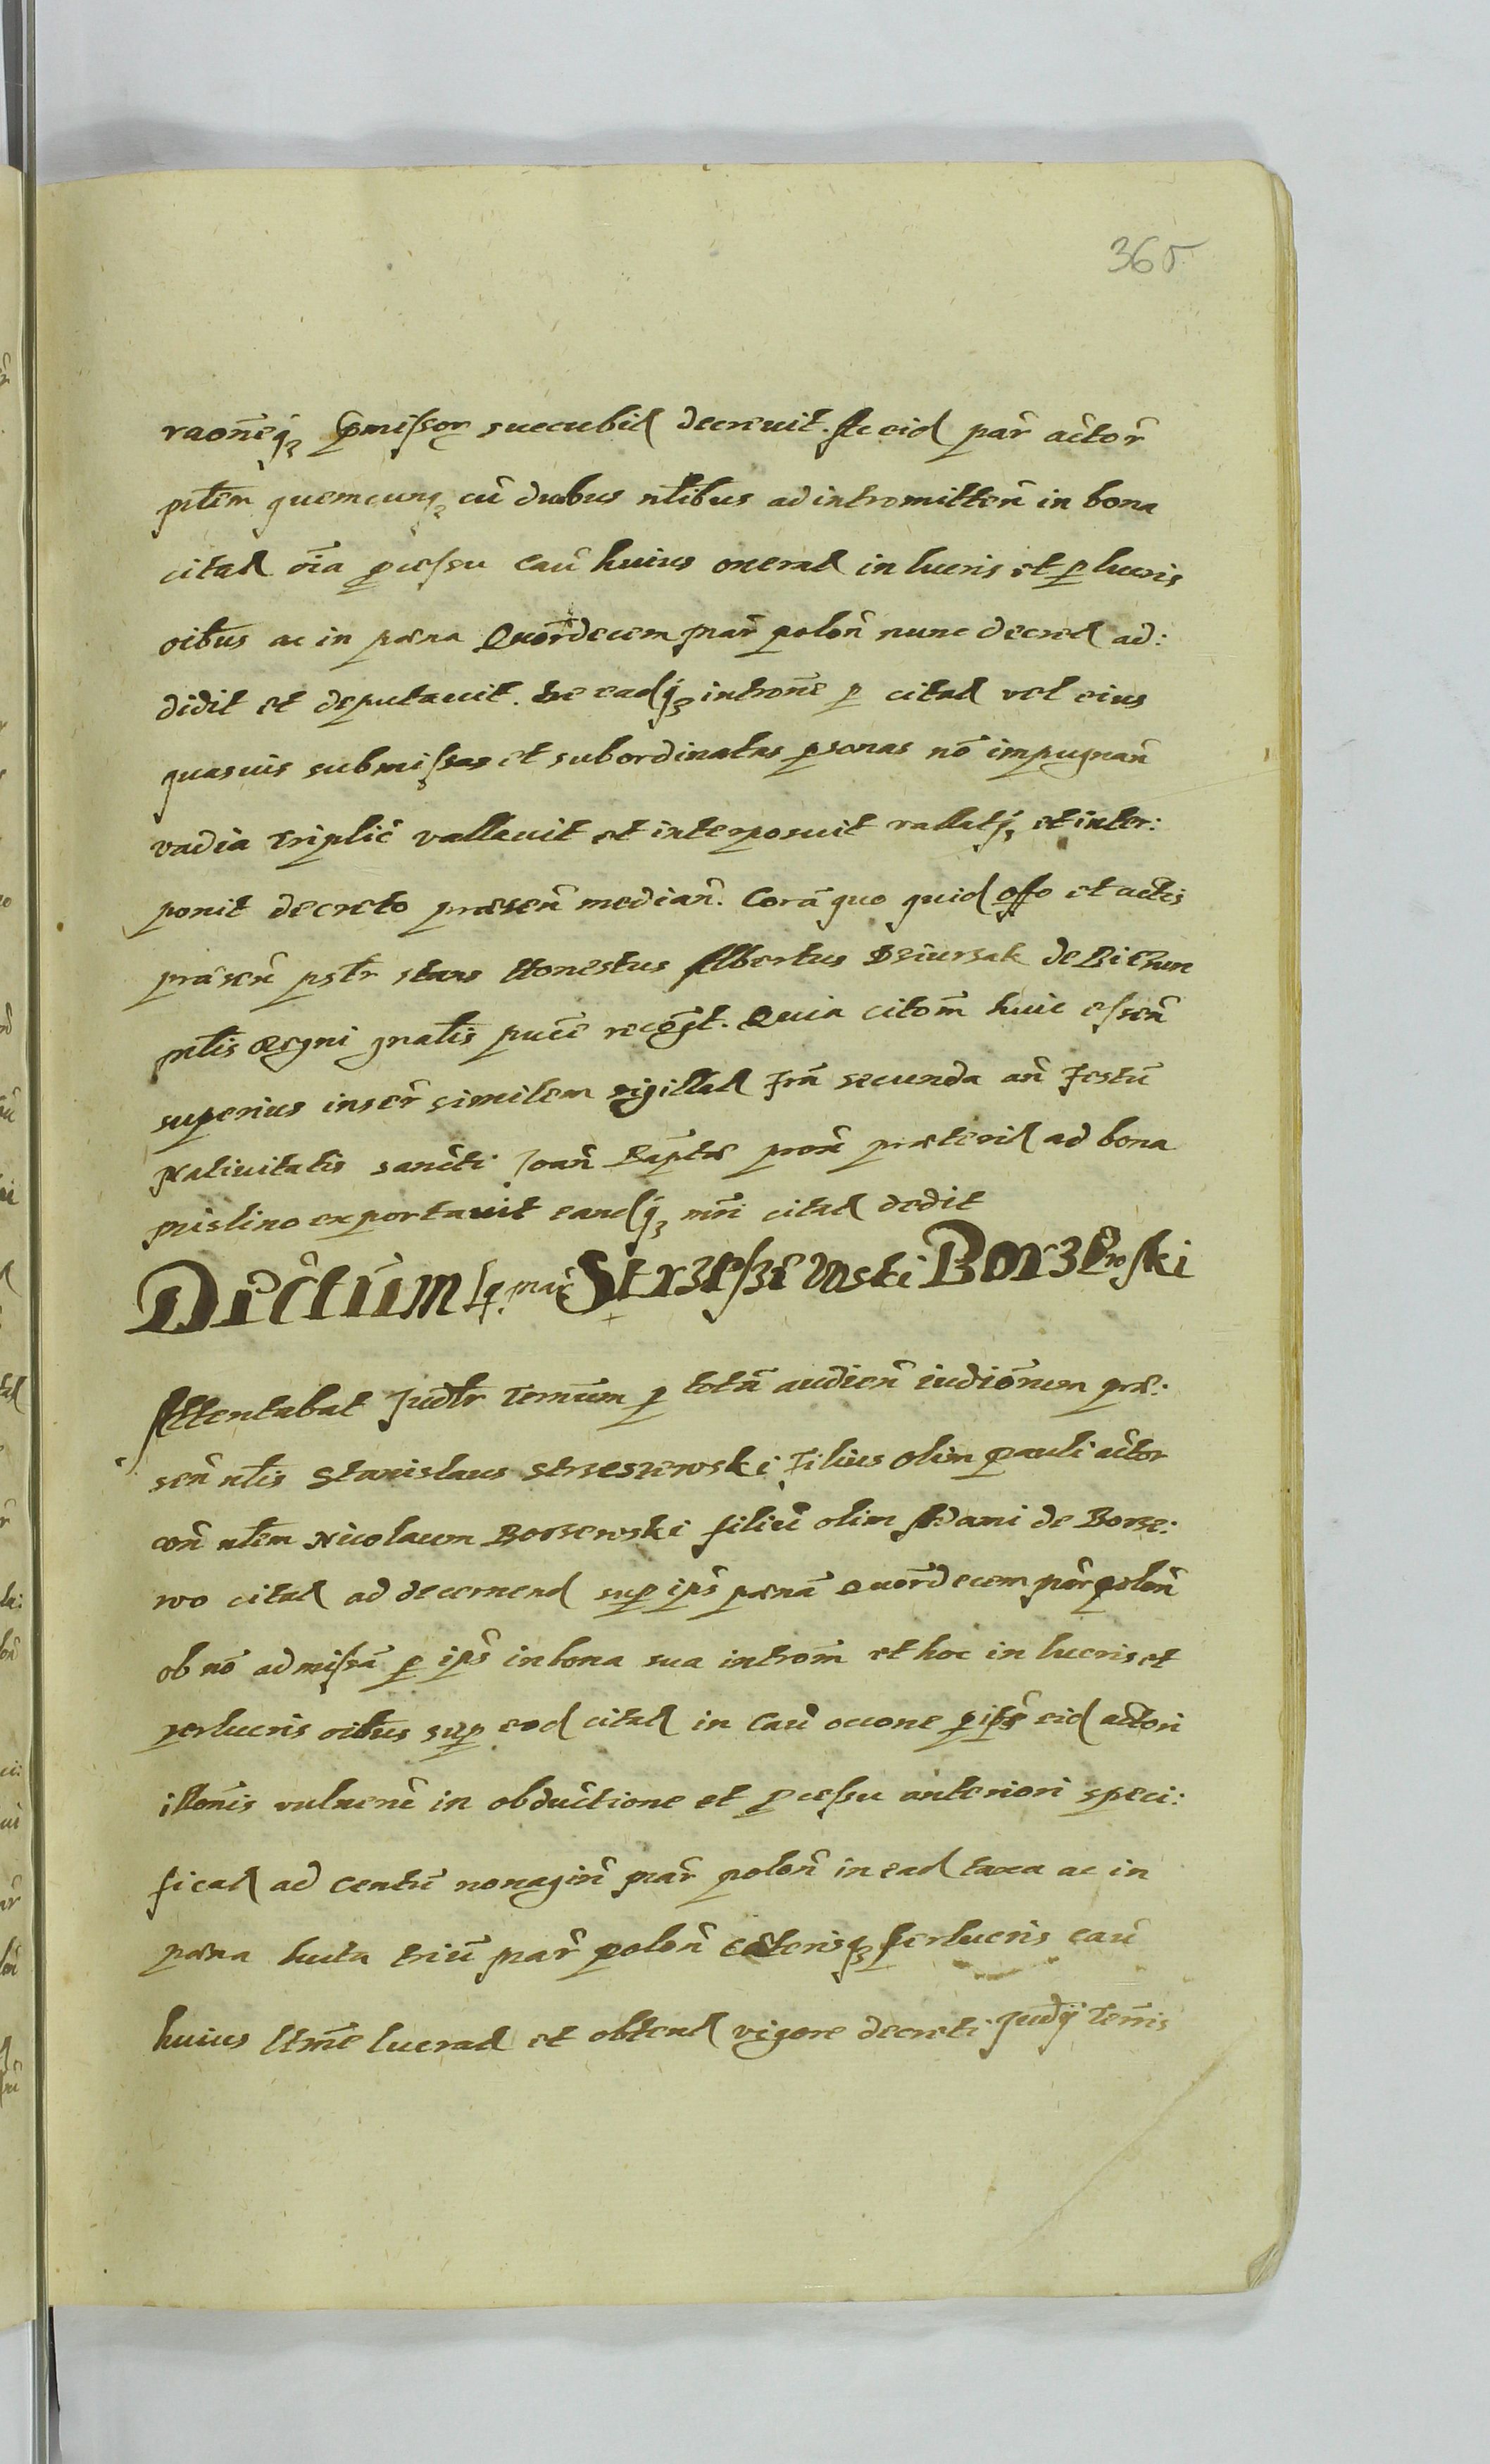 365
raonēq3 p̄missor succubit decrevit. Ac eid par actor
ptēm quemcunq3 cū duobus nlibus ad intromitten̄ in bona
citat oīa processu cau huius onerat in lucris et perlucris
oibus ac in pœna Quordecem mar polon nunc decret ad:
didit et deputavit. eadq3 introne per citat vel eius
quasvis submissas et subordinatas personas nō impugnan
vadia Triplic vallavit et interposuit vallatq3 et inter:
ponit decreto præsen median. Corā quo quid offo et actis
præsen pstr stans Honestus Albertus Dziursak de
ntis Regni gnalis puce recogt. Quia citom huic essen
superius inser similem sigillat Fria secunda an Festū
Nativitatis sancti Joan Baptæ prox præterit ad bona
Mislino exportavit eandq3 mri citat dedit
Dictum 14 mar Strzeszewski Borzewski
Attentabat Judtr Termum per totā audien iudionum præ:
sen nlis Stanislaus Strzeszewski Filius olim Pauli actor
con nlem Nicolaum Borzewski filiū olim Adami de Borze:
wo citat ad decernend sup ips pœnā Quordecem mar polon
ob nō admissā per ips in bona sua introm et hoc in lucris et
perlucris oibus sup eod citat in Cau occone per ips eid actori
illonis vulnerū in obductione et processu anteriori speci:
ficat ad centū nonagin mar polon in ead taxa ac in
pœna luita triū mar polon cæterisq3 perlucris cau
huius ltme lucrat et obtent vigore decreti Judij Terris